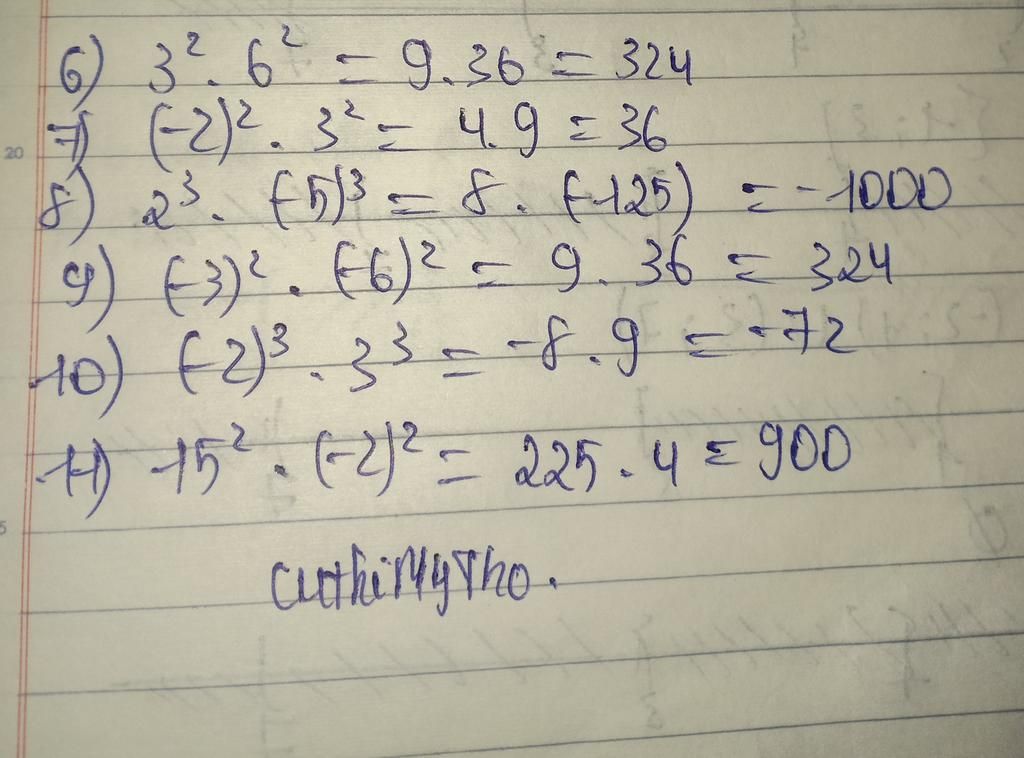 6) 3² . 6² = 9.36 = 324
20
7) (-2)² . 3² = 4.9 = 36
8) 2³ . (-5)³ = 8 . (-125) = -1000
9) (-3)² . (-6)² = 9 . 36 = 324
10) (-2)³ . 3³ = -8 . 9 = -72
11) 15² . (-2)² = 225 . 4 = 900
5
CuthiMyTho.